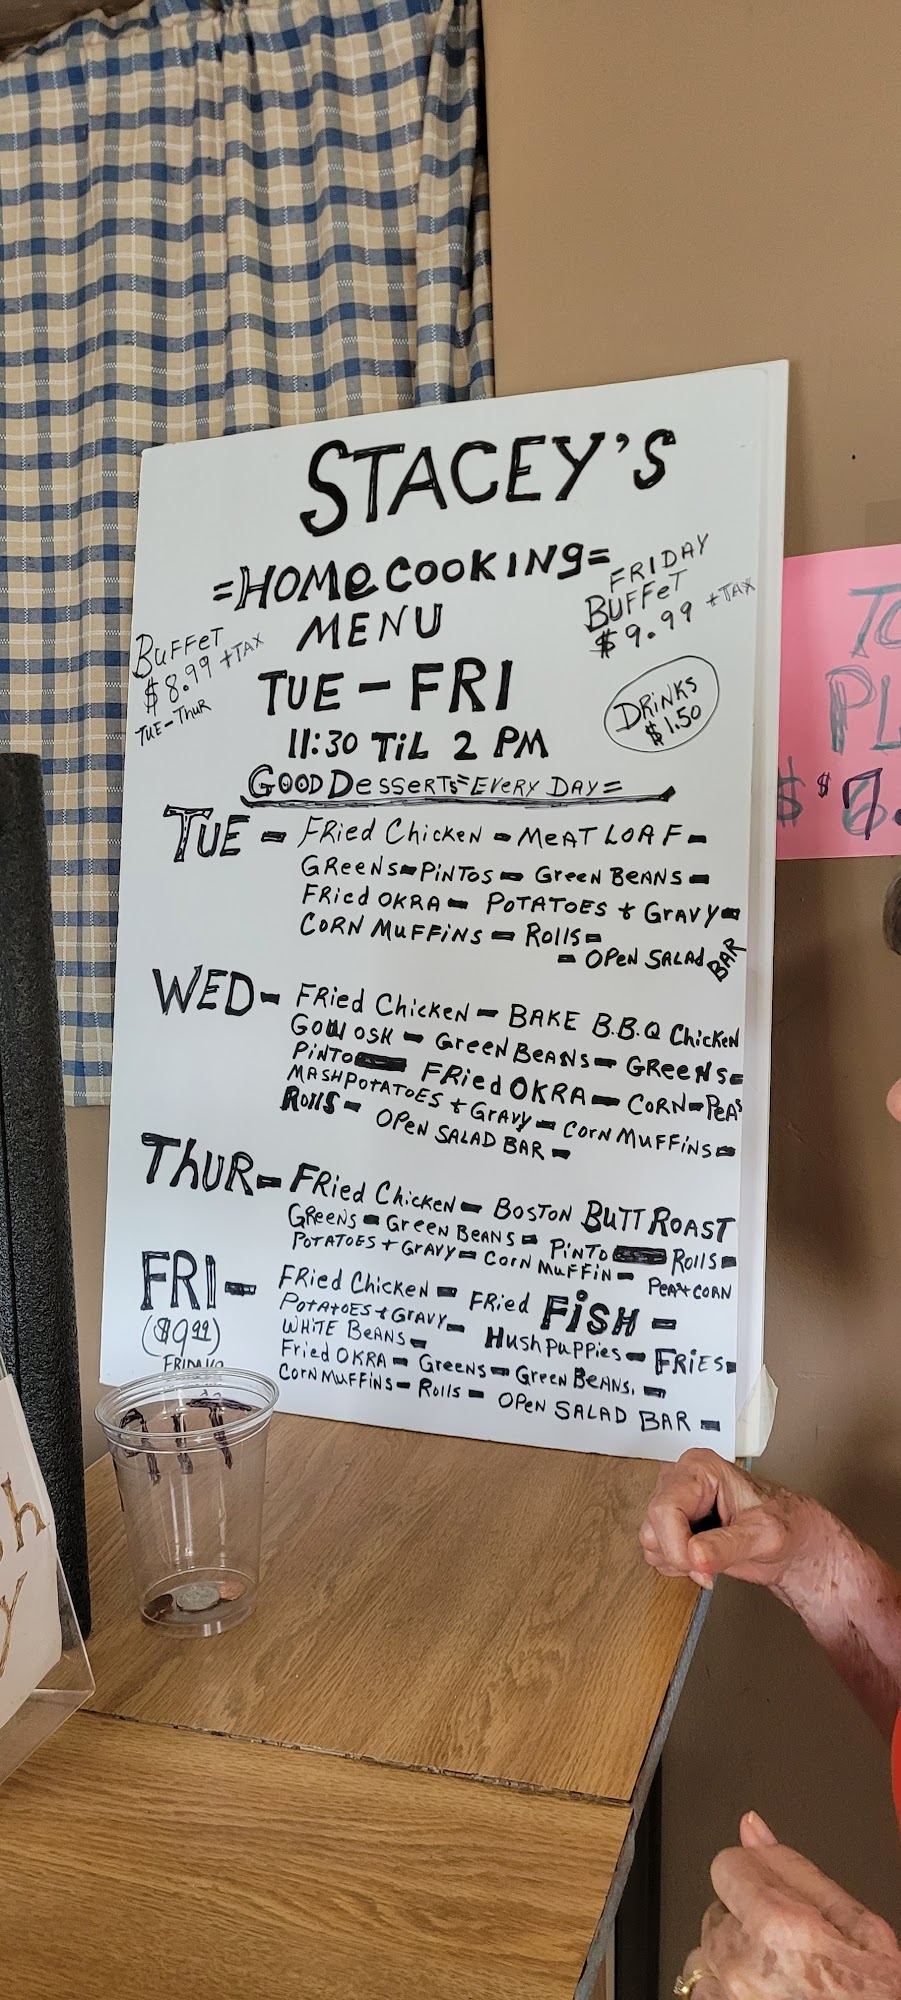 STACEY'S
=HOMe COOKING=
MENU
BUFFeT
$8.99 +TAX
TUE-THUR
FRIDAY
BUFFeT
$9.99 +TAX
TUE-FRI
DRiNKS
$1.50
11:30 TiL 2 PM
GOOD DesserTs=EVERY DAY=
TUE - FRied ChickeN - MeAT LOAF-
GReeNS-PiNTOS - GreeN BeANS-
FRied OKRA - POTATOES + GrAVY-
CORN MuFFiNS - Rolls-
- OPeN SALAd BAR
WED- FRied ChickeN - BAKE B.B.Q ChickeN
GreeN BeANS - GReeNS-
PiNTO FRied OKRA - CORN-PeAS
MASHPOTATOES + GrAVY- CorN MUFFiNS-
Rolls- OPeN SALAD BAR -
ThUR- FRied ChickeN - BOSTON BUTT ROAST
GReeNS - GreeN BEANS- PiNTO Rolls-
POTATOES + GrAVY- CorN MuFFiN- PeA+CORN
FRI- FRied ChickeN - FRied FiSH -
($9.99)
FRIDAYS
POTATOES + GrAVY- HushPuPPies- FRiES-
WHiTE BeANS-
Fried OKRA - GReeNS - GreeN BeANS. -
CornMuFFiNS- Rolls - OPeN SALAD BAR -